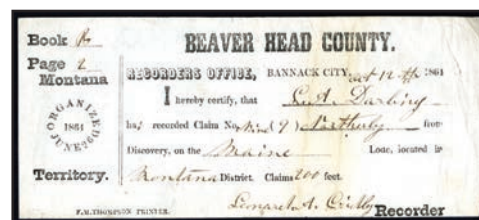 Book
Page 2
Montana
ORGANIZED
1864
JUNE
Territory.
BEAVER HEAD COUNTY.
RECORDERS OFFICE, BANNACK CITY, Oct 12th 1864
I hereby certify, that
Darling
has recorded Claim No. Nine (9) Northerly from
Discovery, on the Maine Lode, located in
Montana District. Claims 200 feet.
Leonard A. Recorder
F.M. THOMPSON PRINTER.